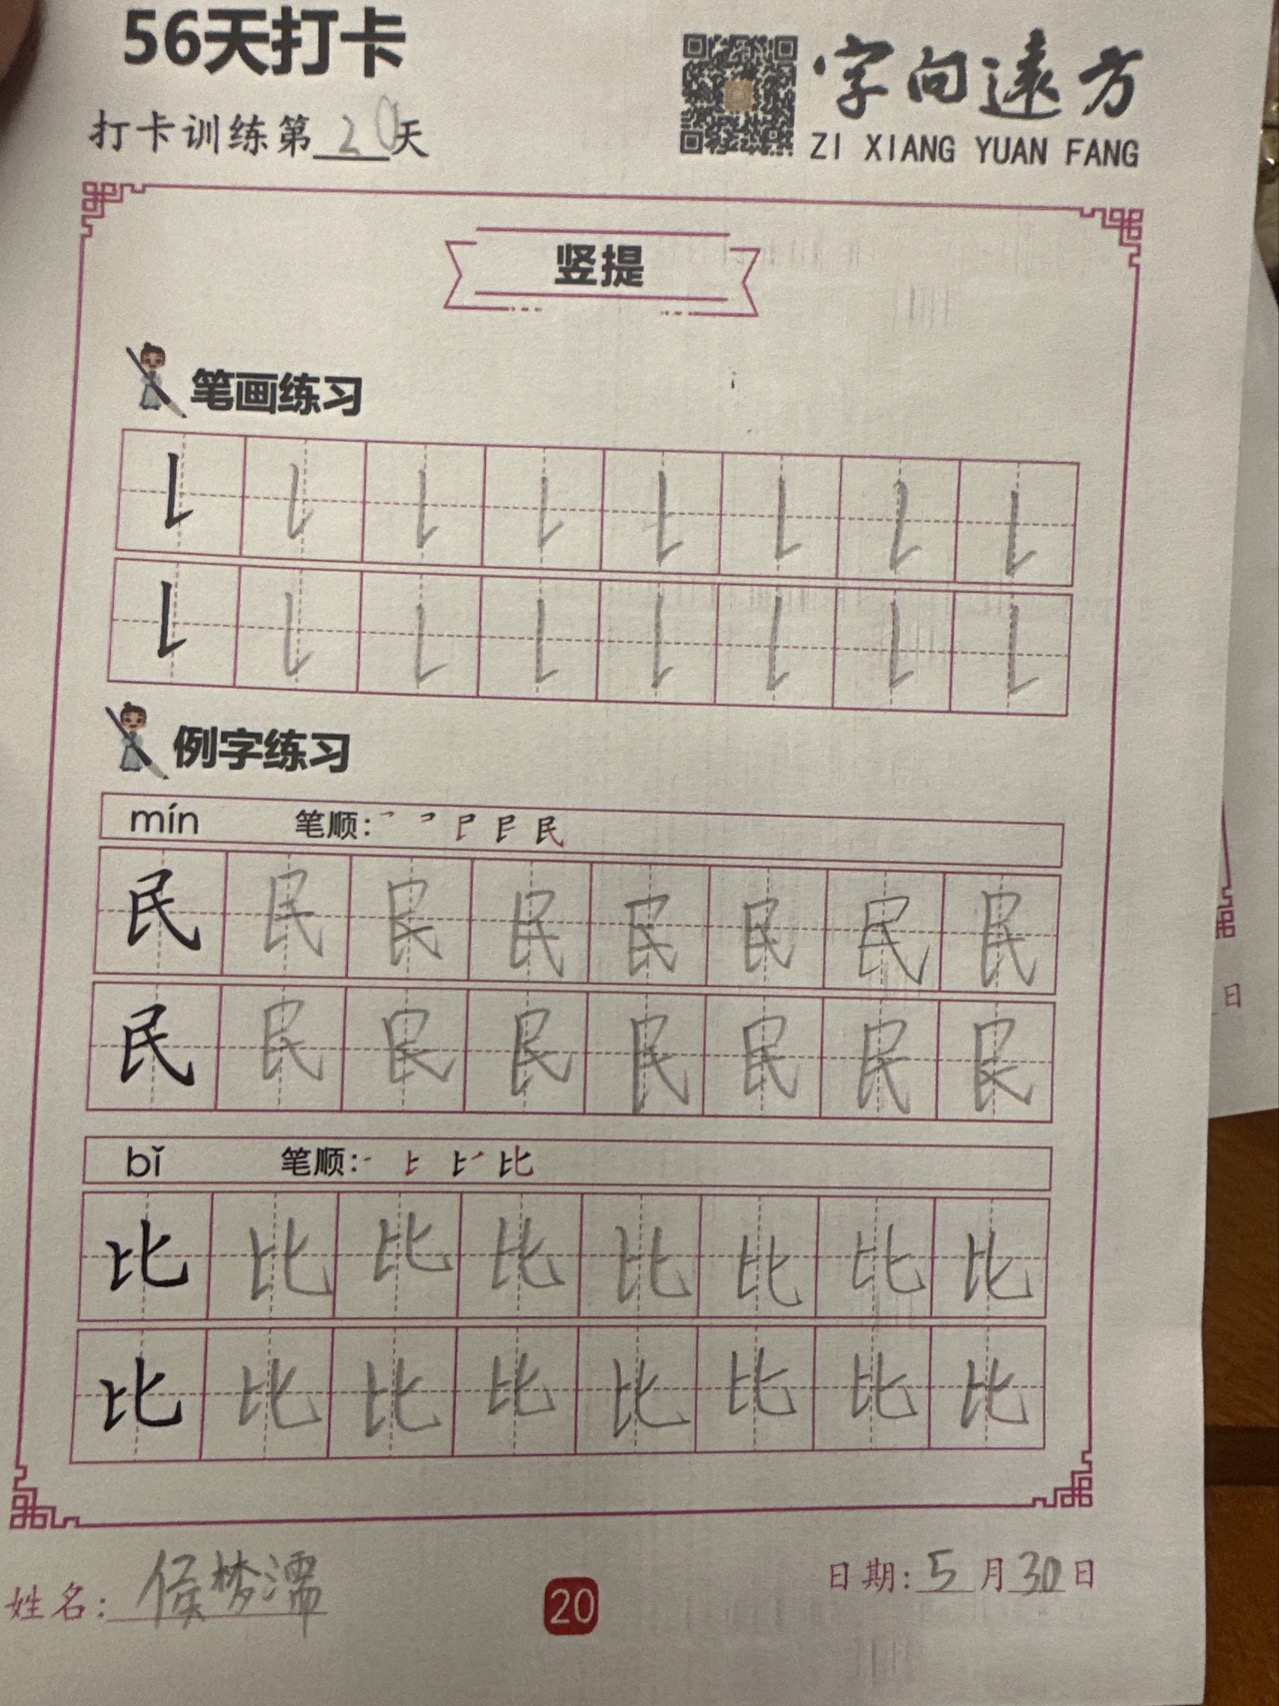 56天打卡
字向遠方
打卡训练第20天
ZI XIANG YUAN FANG
竖提
笔画练习
例字练习
mín 笔顺:
民 民 民 民 民 民 民 民
民 民 民 民 民 民 民 民
bǐ 笔顺: 比
比 比 比 比 比 比 比 比
比 比 比 比 比 比 比 比
日
姓名: 侯梦濡
20
日期: 5月30日